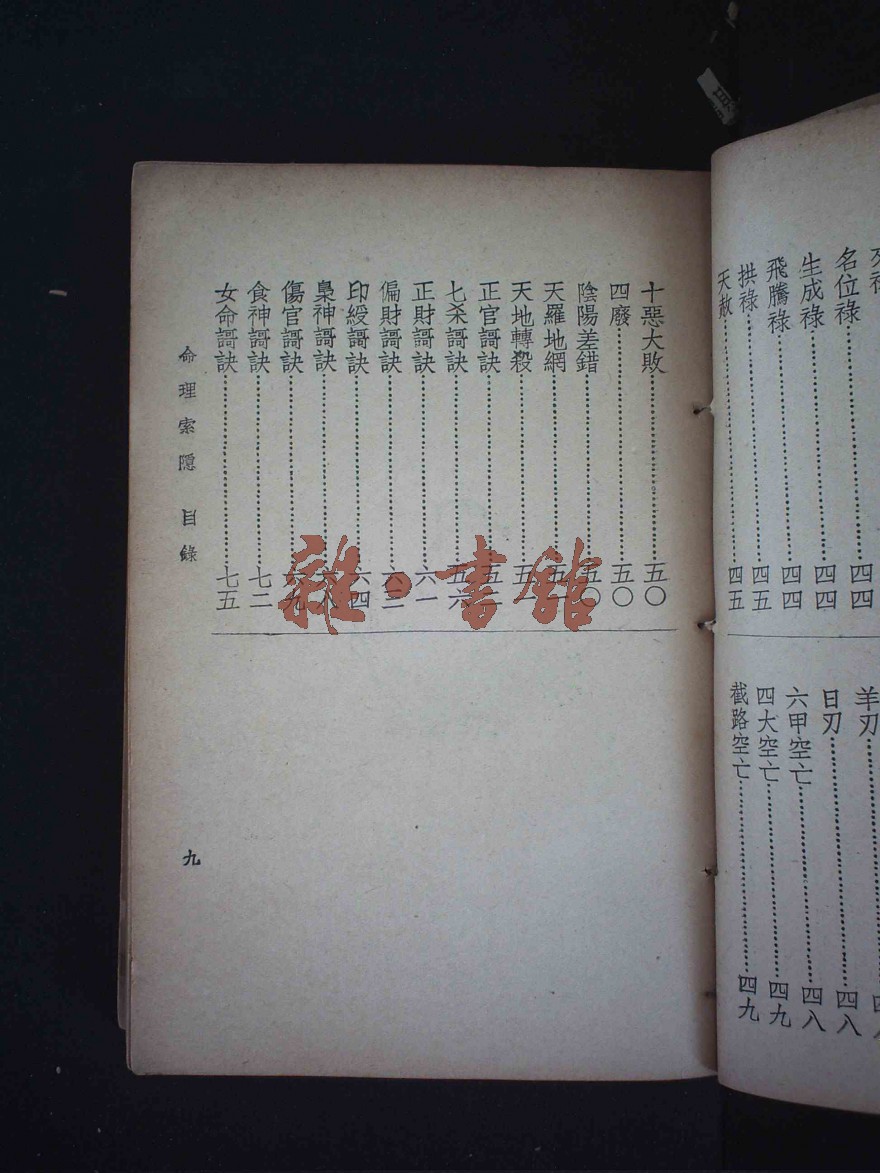 名位祿……四四
生成祿……四四
飛騰祿……四四
拱祿……四五
天赦……四五
羊刃……
日刃……四八
六甲空亡……四八
四大空亡……四九
截路空亡……四九
十惡大敗……五〇
四廢……五〇
陰陽差錯……五〇
天羅地網……五
天地轉殺……五
正官謌訣……五
七杀謌訣……五六
正財謌訣……六一
偏財謌訣……六三
印綬謌訣……六四
梟神謌訣……六八
傷官謌訣……六九
食神謌訣……七二
女命謌訣……七五
命理索隱 目錄
九
雜·書館